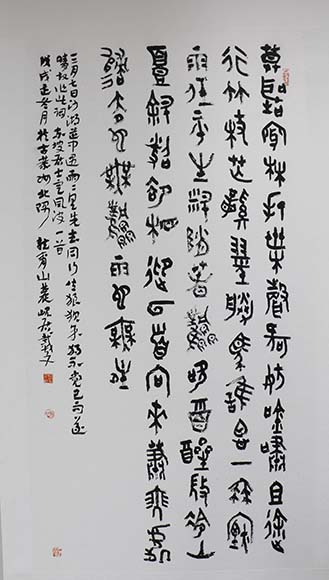 莫聽穿林打葉聲何妨吟嘯且徐
行竹杖芒鞋輕勝馬誰怕一蓑煙
雨任平生料峭春風吹酒醒微冷山
頭斜照卻相迎回首向來蕭瑟處
歸去也無風雨也無晴
三月七日沙湖道中遇雨雨具先去同行皆狼狽余獨不覺已而遂
晴故作此詞 東坡居士定風波一首
戊戌冬月於古萊州北隅 山農